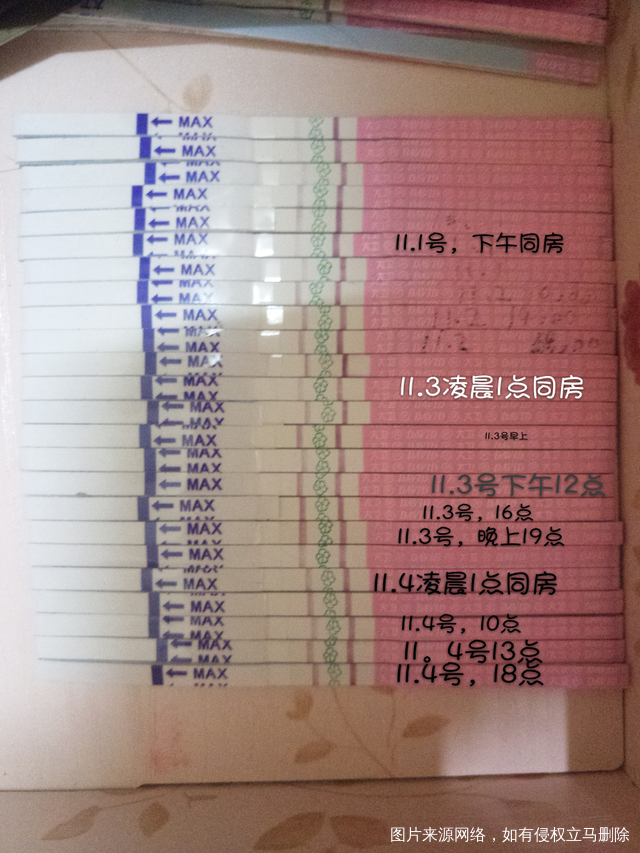 MAX
MAX
MAX
MAX
MAX
MAX
11.1号，下午同房
MAX
MAX
MAX
11.2
MAX
MAX
MAX
11.3凌晨1点同房
MAX
MAX
11.3号早上
MAX
MAX
11.3号下午12点
MAX
11.3号，16点
MAX
11.3号，晚上19点
MAX
MAX
11.4凌晨1点同房
MAX
MAX
11.4号，10点
MAX
11。4号13点
MAX
MAX
11.4号，18点
图片来源网络，如有侵权立马删除